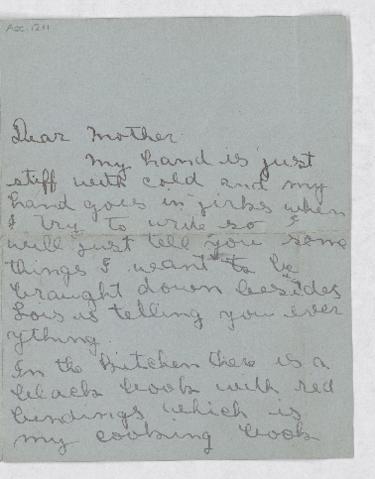 Acc. 1211
Dear Mother
My hand is just
stiff with cold and my
hand goes in jirks when
I try to write so I
will just tell you some
things I want to be
braught down besides
Lois is telling you ever
ything.
In the kitchen there is a
black book with red
bindings which is
my cooking book